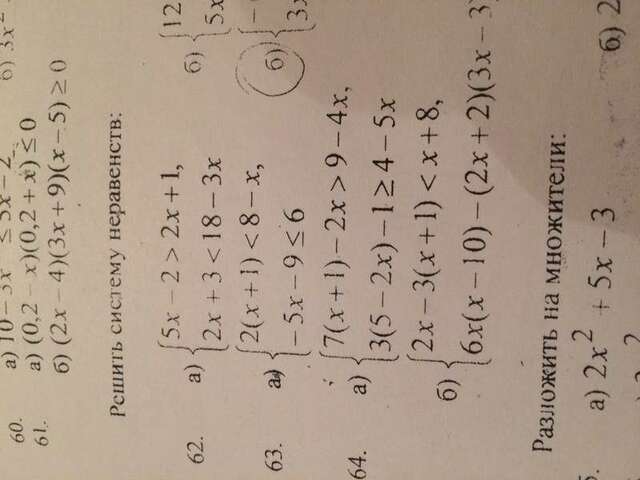 60. а) 10 − 3x ≤ 5x − 2 б) 3x²
61. а) (0,2 − x)(0,2 + x) ≤ 0
б) (2x − 4)(3x + 9)(x − 5) ≥ 0
Решить систему неравенств:
5x − 2 > 2x + 1, 12
62. а) { б) {
2x + 3 < 18 − 3x 5x
2(x + 1) < 8 − x, −
63. а) { б) {
−5x − 9 ≤ 6 3x
7(x + 1) − 2x > 9 − 4x,
64. а) {
3(5 − 2x) − 1 ≥ 4 − 5x
2x − 3(x + 1) < x + 8,
б) {
6x(x − 10) − (2x + 2)(3x − 3)
Разложить на множители:
5. а) 2x² + 5x − 3 б) 2